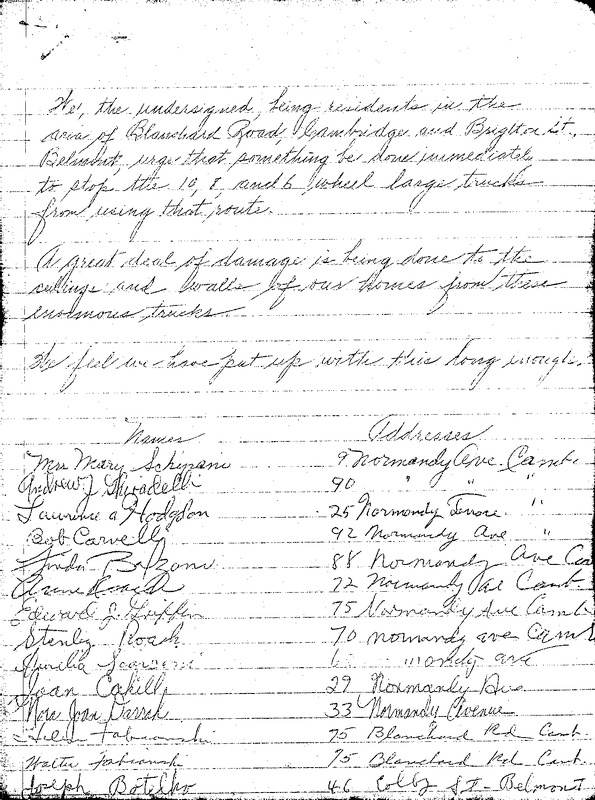 We, the undersigned, being residents in the
area of Blanchard Road, Cambridge and Brighton St.,
Belmont, urge that something be done immediately
to stop the 10, 8, and 6 wheel large trucks
from using that route.
A great deal of damage is being done to the
ceilings and walls of our homes from these
enormous trucks.
We feel we have put up with this long enough.
Names Addresses
Mrs Mary 9 Normandy Ave. Camb.
Andrew J 90 " " "
Laurence A Hodgdon 25 Normandy Terrace "
Bob Carvelli 92 Normandy Ave "
Linda 88 Normandy Ave
Anne Roach 72 Normandy Ave Camb.
Edward J. Griffin 75 Normandy Ave Camb
Stanley Roach 70 normandy ave Camb
Aurelia ave
Joan Cahill 29 Normandy Ave
Nora Joan Darrah 33 Normandy Avenue
75 Blanchard Rd Camb.
Walter 75 Blanchard Rd Camb.
Joseph Botelho 46 Colby St - Belmont